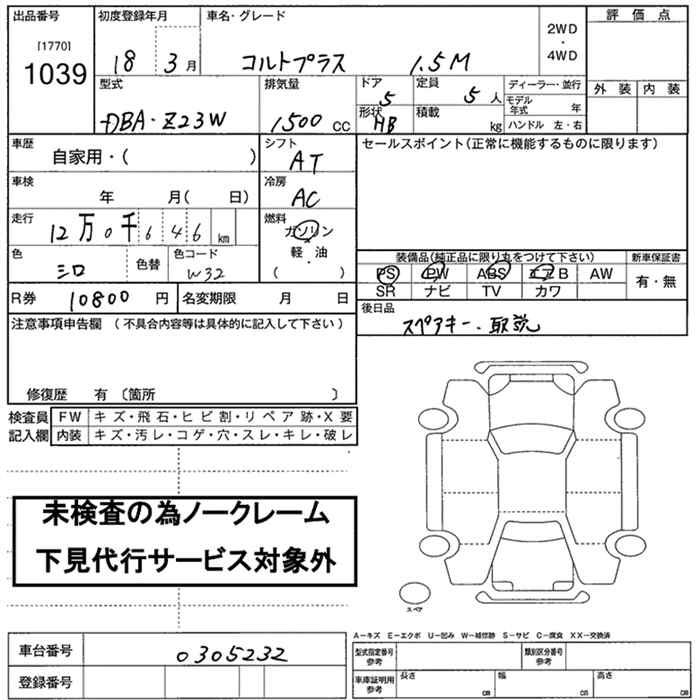 出品番号 初度登録年月 車名・グレード 2WD・4WD 評価点
[1770]
1039 18 3月 コルトプラス 1.5M
型式 排気量 ドア 定員 ディーラー・並行 外装 内装
DBA・Z23W 1500 CC 5 5人 モデル年式 年
形状 HB 積載 kg ハンドル 左・右
車歴 シフト セールスポイント(正常に機能するものに限ります)
自家用・( ) AT
車検 冷房
年 月( 日) AC
走行 燃料
12万0千646km ガソリン
軽・油
( )
色 色替 色コード 装備品(純正品に限り丸をつけて下さい) 新車保証書
シロ W32 PS PW ABS エアB AW 有・無
SR ナビ TV カワ
R券 10800円 名変期限 月 日 後日品
スペアキー、取説
注意事項申告欄 (不具合内容等は具体的に記入して下さい)
修復歴 有 〔箇所 〕
検査員 FW キズ・飛石・ヒビ割・リペア跡・X要
記入欄 内装 キズ・汚レ・コゲ・穴・スレ・キレ・破レ
未検査の為ノークレーム
下見代行サービス対象外
スペア
A-キズ E-エクボ U-凹み W-補修跡 S-サビ C-腐食 XX-交換済
車台番号 0305232 型式指定番号 参考 類別区分番号 参考
登録番号 車庫証明用 参考 長さ cm 幅 cm 高さ cm